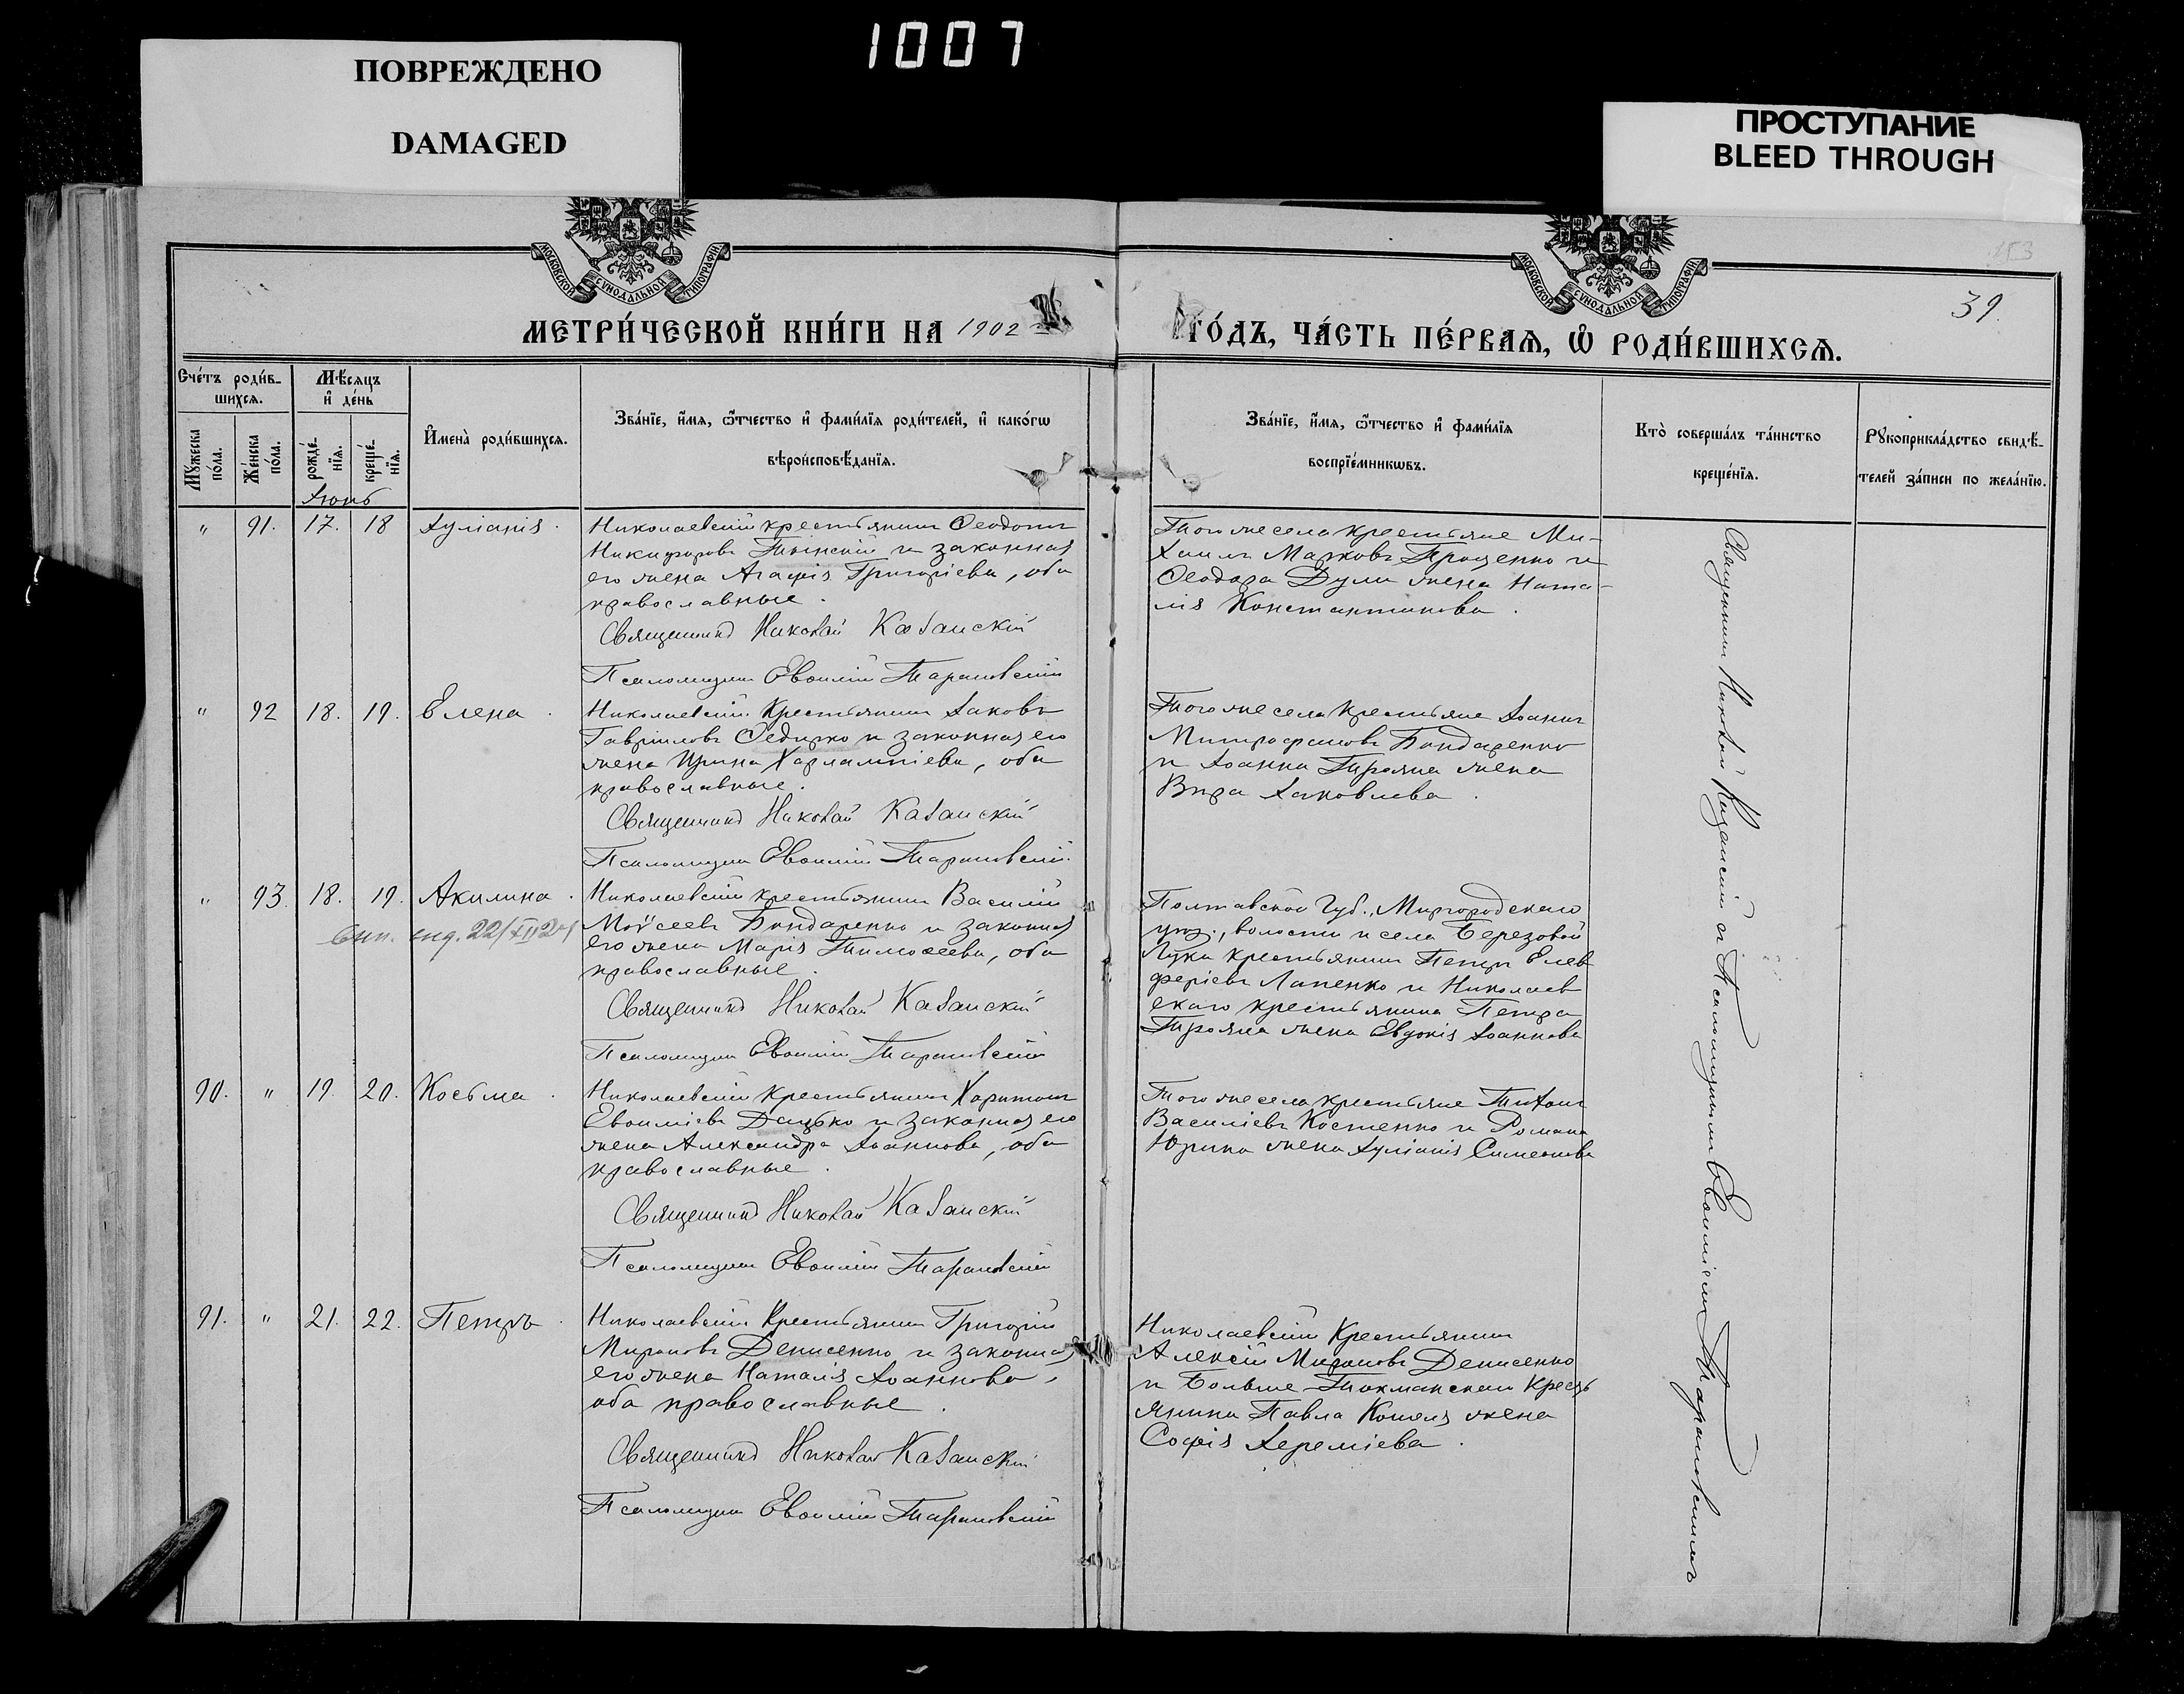 1007
ПОВРЕЖДЕНО
DAMAGED
ПРОСТУПАНИЕ
BLEED THROUGH
МОСКОВСКОЙ СѴНОДАЛЬНОЙ ТИПОГРАФІИ
МОСКОВСКОЙ СѴНОДАЛЬНОЙ ТИПОГРАФІИ
153
39.
МЕТРИ́ЧЕСКОЙ КНИ́ГИ НА 1902
ГО́ДЪ, ЧА́СТЬ ПЕ́РВАѦ, Ѡ҆ РОДИ́ВШИХСѦ.
Сче́тъ роди́в-
шихсѧ.
Мѣ́сѧцъ
и҆ де́нь
Мꙋ́жеска
по́ла.
Же́нска
по́ла.
рожде́-
нїѧ.
креще́-
нїѧ.
И҆мена̀ роди́вшихсѧ.
Зва́нїе, и҆́мѧ, ѻ҆́тчество и҆ фами́лїѧ роди́телей, и҆ како́гѡ
вѣроисповѣ́данїѧ.
Зва́нїе, и҆́мѧ, ѻ҆́тчество и҆ фами́лїѧ
воспрїе́мникѡвъ.
Кто̀ соверша́лъ та́инство
креще́нїѧ.
Рꙋкоприкла́дство свидѣ́-
телей за́писи по жела́нїю.
Іюнь
" 91. 17. 18 Іуліанія.
Николаевскій крестьянинъ Ѳеодотъ
Никифоровъ Тынскій и законная
его жена Агафія Григоріева, оба
православные.
Священникъ Николай Казанскій
Псаломщикъ Евѳимій Тарановскій
Того же села крестьяне Ми-
хаилъ Марковъ Проценко и
Ѳеодора Дули жена Ната-
лія Константинова.
" 92 18. 19. Елена.
Николаевскій Крестьянинъ Іаковъ
Гавріиловъ Седирко и законная его
жена Ирина Харлампіева, оба
православные.
Священникъ Николай Казанскій
Псаломщикъ Евѳимій Тарановскій.
Того же села Крестьяне Іоаннъ
Митрофановъ Бондаренко
и Іоанна Трояна жена
Вѣра Іаковлева.
" 93. 18. 19. Акилина.
22/XII 24
Николаевскій крестьянинъ Василій
Моѵсеевъ Бондаренко и законная
его жена Марія Тимоѳеева, оба
православные.
Священникъ Николай Казанскій
Псаломщикъ Евѳимій Тарановскій
Полтавской Губ., Миргородскаго
уѣз., волости и села Березовой
Луки крестьянинъ Петръ Елев
феріевъ Лапенко и Николаев
скаго крестьянина Петра
Трояна жена Евдокія Іоаннова
90. " 19. 20. Косьма.
Николаевскій крестьянинъ Харитонъ
Евѳиміевъ Дацько и законная его
жена Александра Іоаннова, оба
православные.
Священникъ Николай Казанскій
Псаломщикъ Евѳимій Тарановскій
Того же села крестьяне Тихонъ
Василіевъ Костенко и Романа
Юрина жена Іуліанія Симеонова
91. " 21. 22. Петръ.
Николаевскій Крестьянинъ Григорій
Мироновъ Денисенко и законная
его жена Наталія Іоаннова,
оба православные.
Священникъ Николай Казанскій
Псаломщикъ Евѳимій Тарановскій
Николаевскій Крестьянинъ
Алексій Мироновъ Денисенко
и Больше-Токмакскаго Кресть
янина Павла Коваля жена
Софія Іереміева.
Священникъ Николай Казанскій съ Псаломщикомъ Евѳиміемъ Тарановскимъ